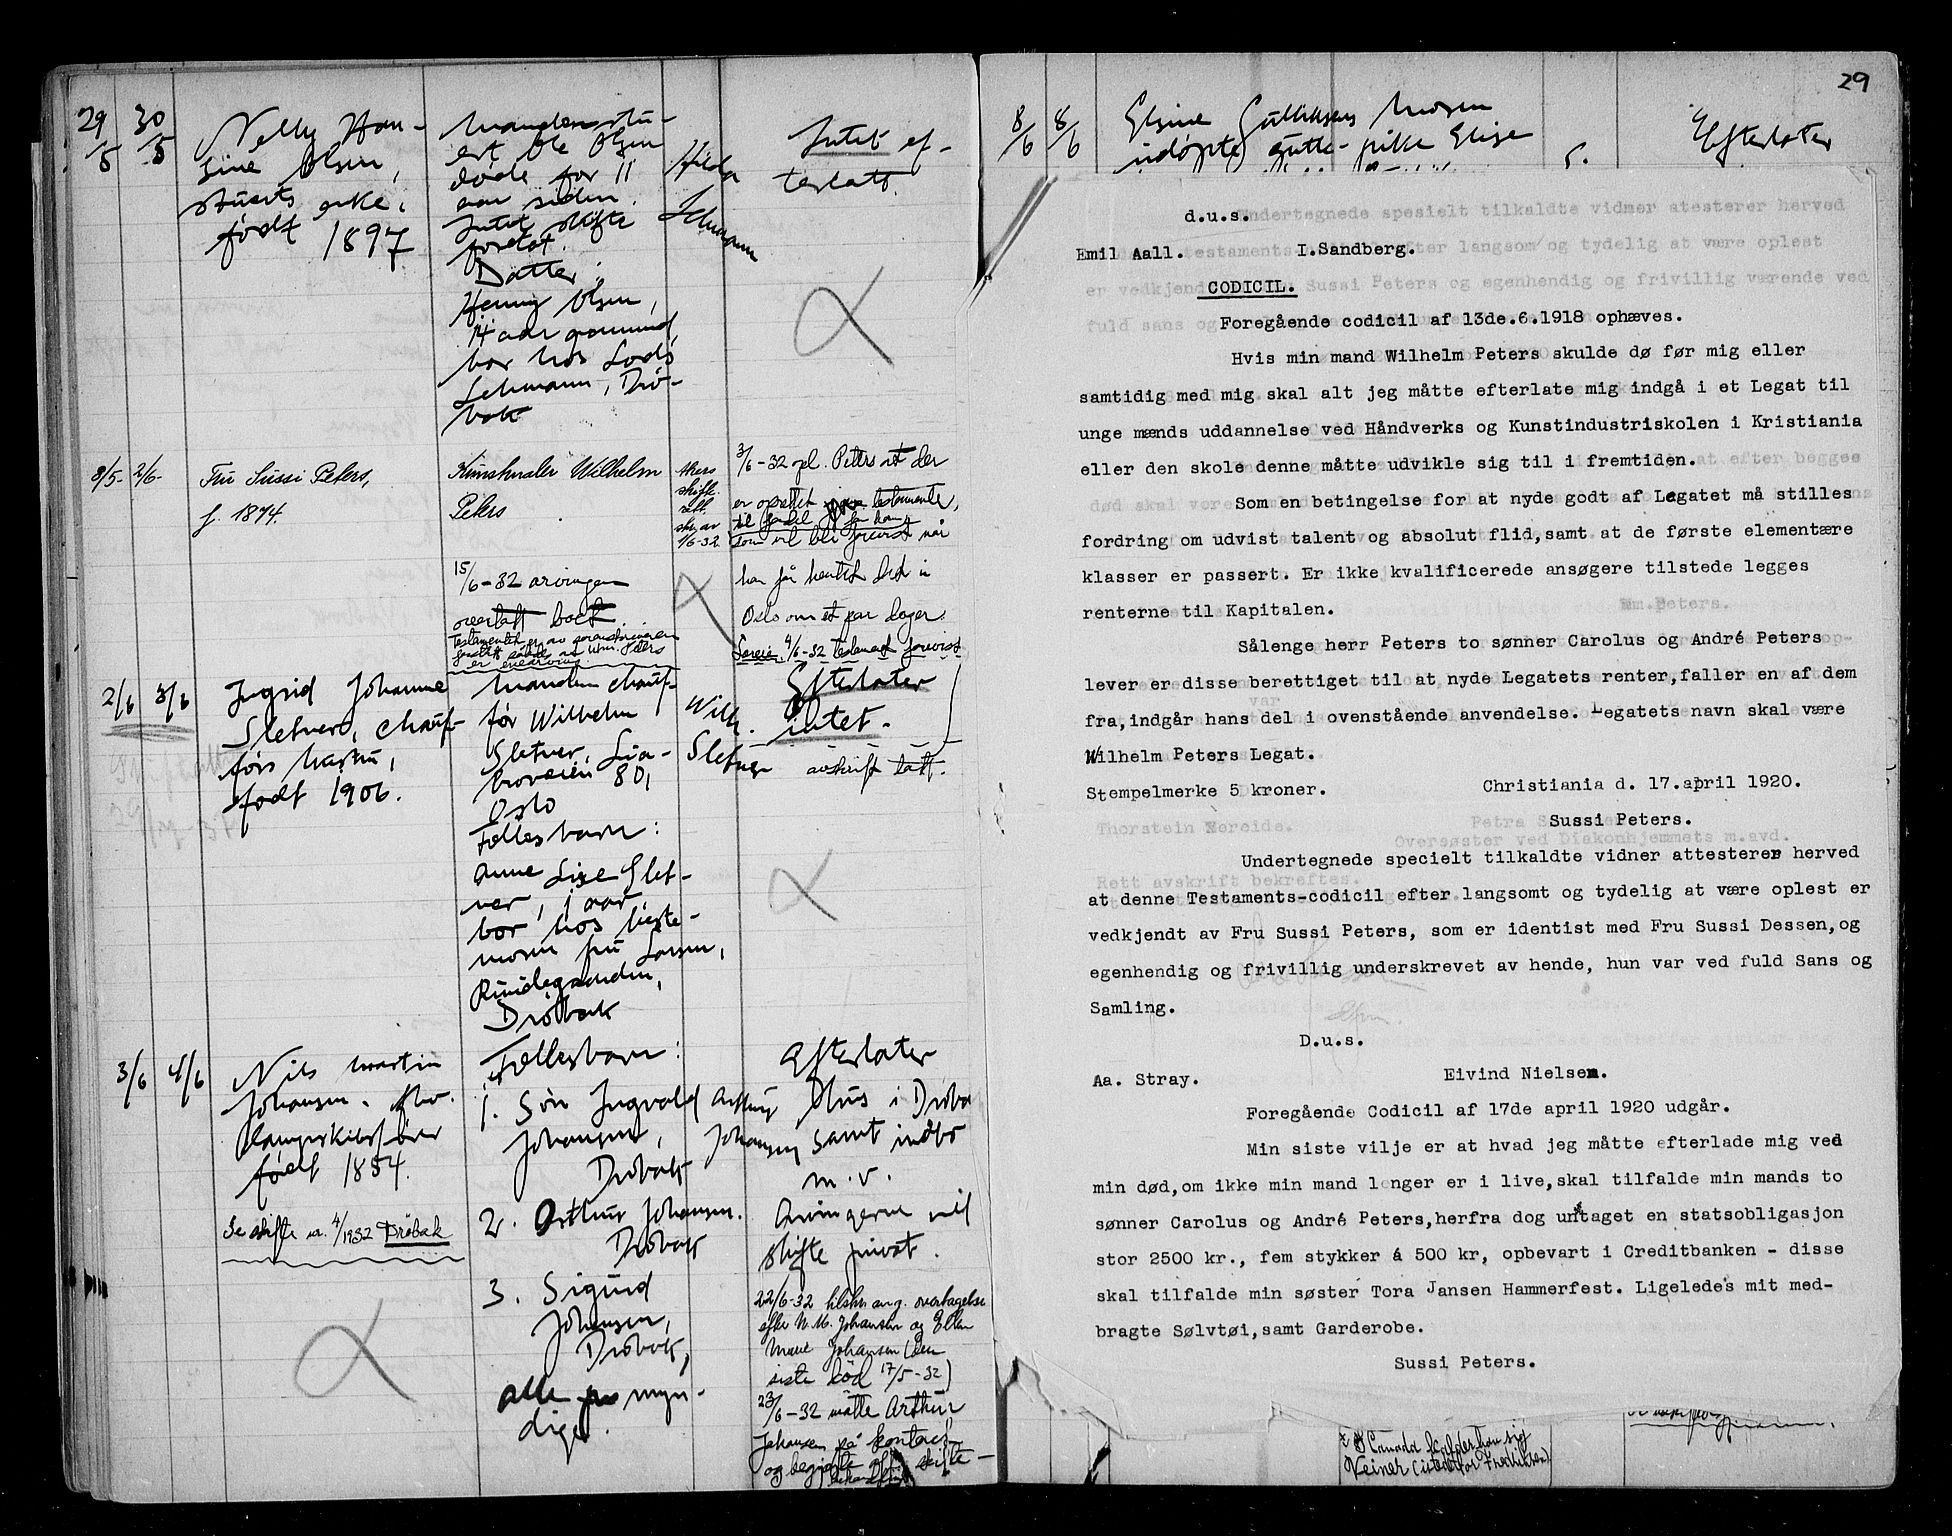 29/5 30/5
Nelly Han-
sine Olsen,
stuerts enke,
født 1897
Manden stu-
ert Ole Olsen
døde for 11
aar siden.
Intet skifte
foretat.
Datter:
Henny Olsen,
14 aar gammel
bor hos Lods
Lehmann, Drø-
bak
Hilda
Lehmann
Intet ef-
terlatt.
2/6-
Fru Sussi Peters,
f. 1874.
Kunstmaler Wilhelm
Peters
15/6-32 arvingen
overtatt boet.
Akers
skifte-
3/6-32 opl. Peters at der
er oprettet testamente,
som vil bli forevist når
han får hentet det i
Oslo om et par dager.
4/6-32 testament forevist
2/6 3/6
Ingrid Johanne
Sletver, chauf-
førs hustru,
født 1906.
Manden chauf-
før Wilhelm
Sletver, Lia-
broveien 80,
Oslo
Fellesbarn:
Anne Lise Slet-
ver, 1 aar
bor hos beste-
moren fru Larsen,
Drøbak
Wilh.
Sletver
Efterlater
intet.
avskrift tatt.
3/6 4/6
Nils Martin
Johansen. fhv.
født 1854.
Se skifte nr. 4/1932 Drøbak
Fellesbarn:
1. Søn Ingvald
Johansen,
Drøbak
2. Arthur Johansen.
Drøbak
3. Sigurd
Johansen,
Drøbak,
alle myn-
dige.
Arthur
Johansen
Efterlater
Hus i Drøba
samt indbo
m.v.
Arvingerne vil
skifte privat.
22/6-32 tilskr. ang. overtagelse
efter N. M. Johansen og Ellen
Marie Johansen (den
siste død 17/5-32)
23/6-32 møtte Arthur
Johansen på kontoret
og begjærte off. skifte-
behandling
29
8/6 8/6
Elsine Gulliksens Mosen
udøpte gutte- pike Elise
Efterlater
d.u.s.
Emil Aall. I.Sandberg.
CODICIL.
Foregående codicil af 13de.6.1918 ophæves.
Hvis min mand Wilhelm Peters skulde dø før mig eller
samtidig med mig skal alt jeg måtte efterlate mig indgå i et Legat til
unge mænds uddannelse ved Håndverks og Kunstindustriskolen i Kristiania
eller den skole denne måtte udvikle sig til i fremtiden.
Som en betingelse for at nyde godt af Legatet må stilles
fordring om udvist talent og absolut flid,samt at de første elementære
klasser er passert. Er ikke kvalificerede ansøgere tilstede legges
renterne til Kapitalen.
Sålenge herr Peters to sønner Carolus og André Peters
lever er disse berettiget til at nyde Legatets renter,faller en af dem
fra,indgår hans del i ovenstående anvendelse. Legatets navn skal være
Wilhelm Peters Legat.
Stempelmerke 5 kroner. Christiania d. 17.april 1920.
Sussi Peters.
Undertegnede specielt tilkaldte vidner attesterer herved
at denne Testaments-codicil efter langsomt og tydelig at være oplest er
vedkjendt av Fru Sussi Peters, som er identist med Fru Sussi Dessen,og
egenhendig og frivillig underskrevet av hende, hun var ved fuld Sans og
Samling.
D.u.s.
Aa. Stray. Eivind Nielsen.
Foregående Codicil af 17de april 1920 udgår.
Min siste vilje er at hvad jeg måtte efterlade mig ved
min død,om ikke min mand lenger er i live,skal tilfalde min mands to
sønner Carolus og André Peters,herfra dog untaget en statsobligasjon
stor 2500 kr., fem stykker á 500 kr, opbevart i Creditbanken - disse
skal tilfalde min søster Tora Jansen Hammerfest. Ligeledes mit med-
bragte Sølvtøi,samt Garderobe.
Sussi Peters.
Canada kalder han sig
Reiner (istedetfor Fredriksen)